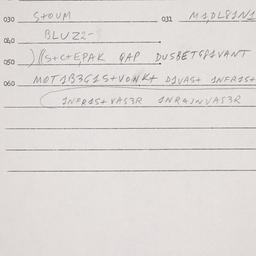 030 S+OUM 031 M1DL81N1
040 BLUZ2-
050 )((S+C+EPAK GAP DUSBETG81VANT
060 MOT1B3G1S+VOWK+ D1VAS+ 1NFR1S+
1NFR1S+VAS3R 1NRG1NVAS3R